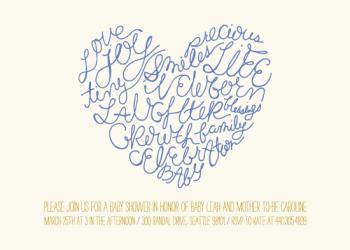 Love precious
Joy Smiles LIFE
tiny Newborn
LAUGHTER blessings
Growth family
Celebration
BABY
PLEASE JOIN US FOR A BABY SHOWER IN HONOR OF BABY LEAH AND MOTHER TO-BE CAROLINE
MARCH 25TH AT 3 IN THE AFTERNOON / 300 RANDAL DRIVE, SEATTLE 98101 / RSVP TO KATE AT 4403054899